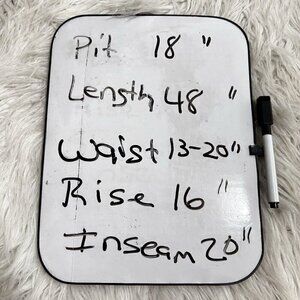 Pit 18 "
Length 48 "
Waist 13-20"
Rise 16 "
Inseam 20"